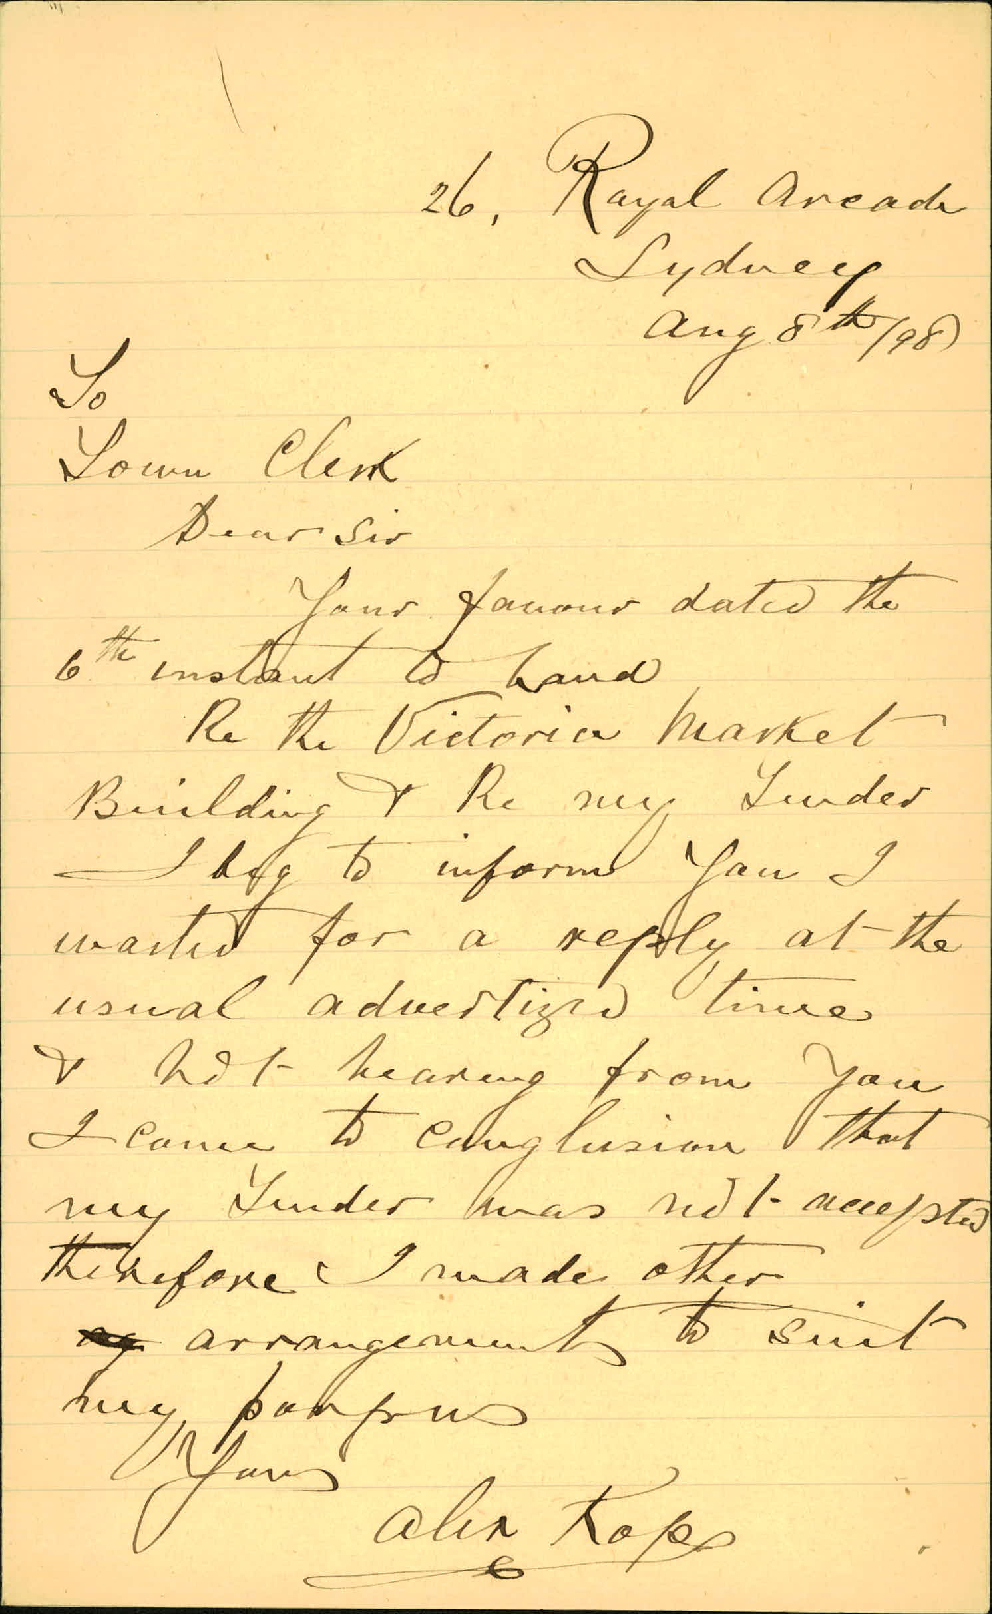 26, Royal Arcade
Sydney
Aug 8th/98
To
Town Clerk
Dear Sir
Your favour dated the
6th instant to hand
Re the Victoria Market
Building & Re my Tender
I beg to inform You I
waited for a reply at the
usual advertized time
& not hearing from You
I came to conglusion that
my Tender was not accepted
therefore I made other
arrangements to suit
my
Yours
Alex Kop